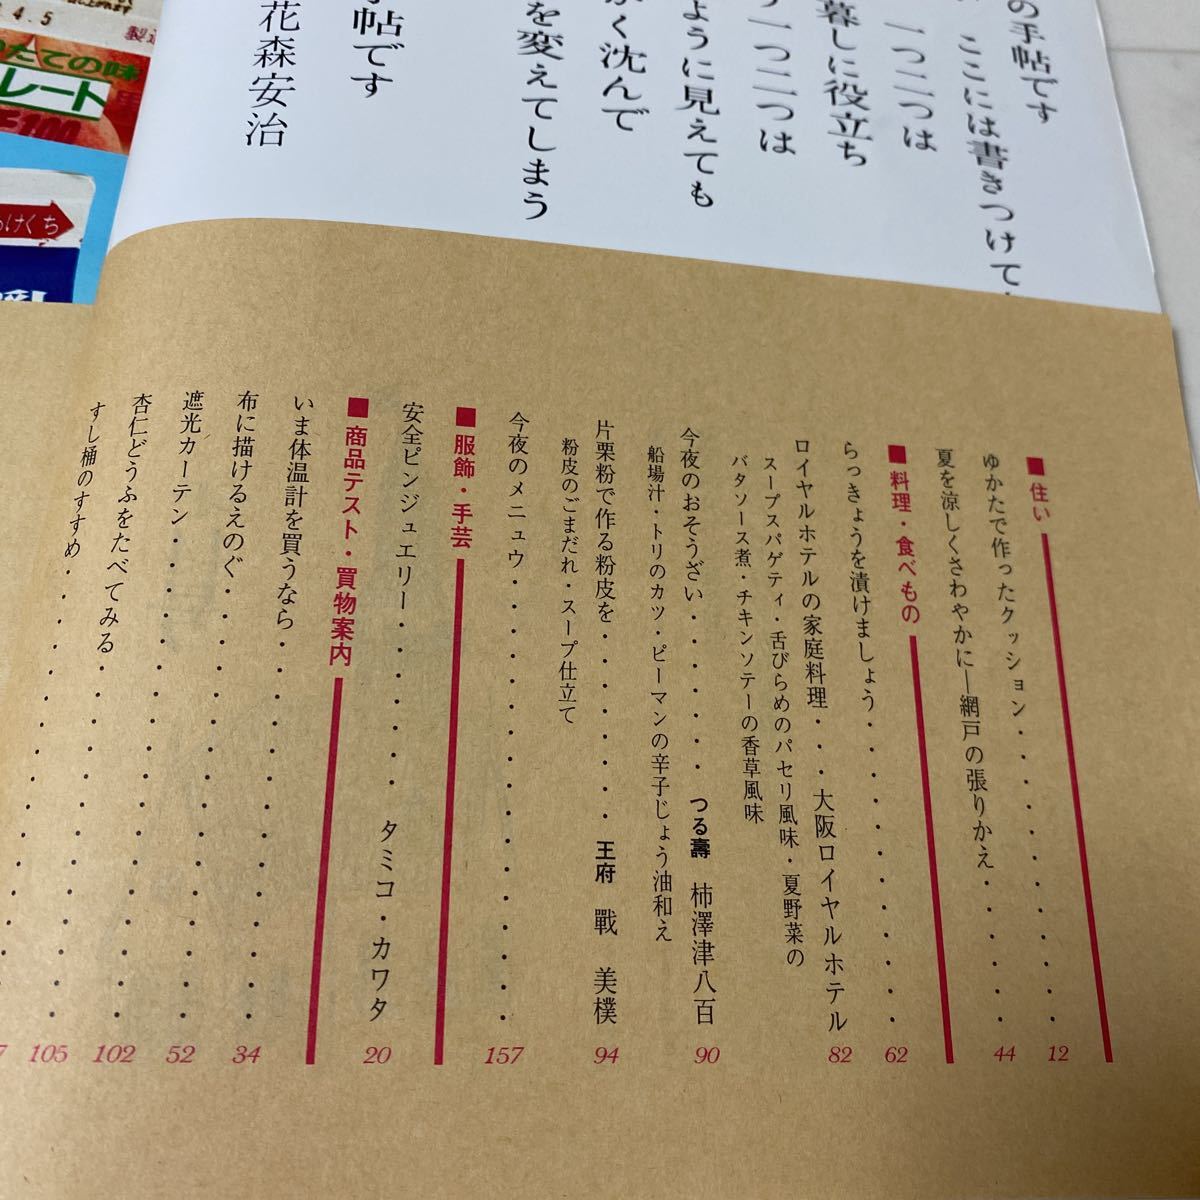 の手帖です
ここには書きつけて
一つ二つは
暮しに役立ち
一つ二つは
ように見えても
く沈んで
を変えてしまう
手帖です
花森安治
4.5
製造
たての味
レート
100
けくち
乳
■住い
ゆかたで作ったクッション・・・・・・・・・12
夏を涼しくさわやかに―網戸の張りかえ・・・・・・44
■料理・食べもの
らっきょうを漬けましょう・・・・・・・・・・・・62
ロイヤルホテルの家庭料理・・・大阪ロイヤルホテル 82
スープスパゲティ・舌びらめのパセリ風味・夏野菜の
バタソース煮・チキンソテーの香草風味
今夜のおそうざい・・・・・・・つる壽 柿澤津八百 90
船場汁・トリのカツ・ピーマンの辛子じょう油和え
片栗粉で作る粉皮を・・・・・・・王府 戰 美樸 94
粉皮のごまだれ・スープ仕立て
今夜のメニュウ・・・・・・・・・・・・・・・・157
■服飾・手芸
安全ピンジュエリー・・・・・・タミコ・カワタ 20
■商品テスト・買物案内
いま体温計を買うなら・・・・・・・・・・・・・・34
布に描けるえのぐ・・・・・・・・・・・・・・・・52
遮光カーテン・・・・・・・・・・・・・・・・・・102
杏仁どうふをたべてみる・・・・・・・・・・・・・105
すし桶のすすめ・・・・・・・・・・・・・・・・・7